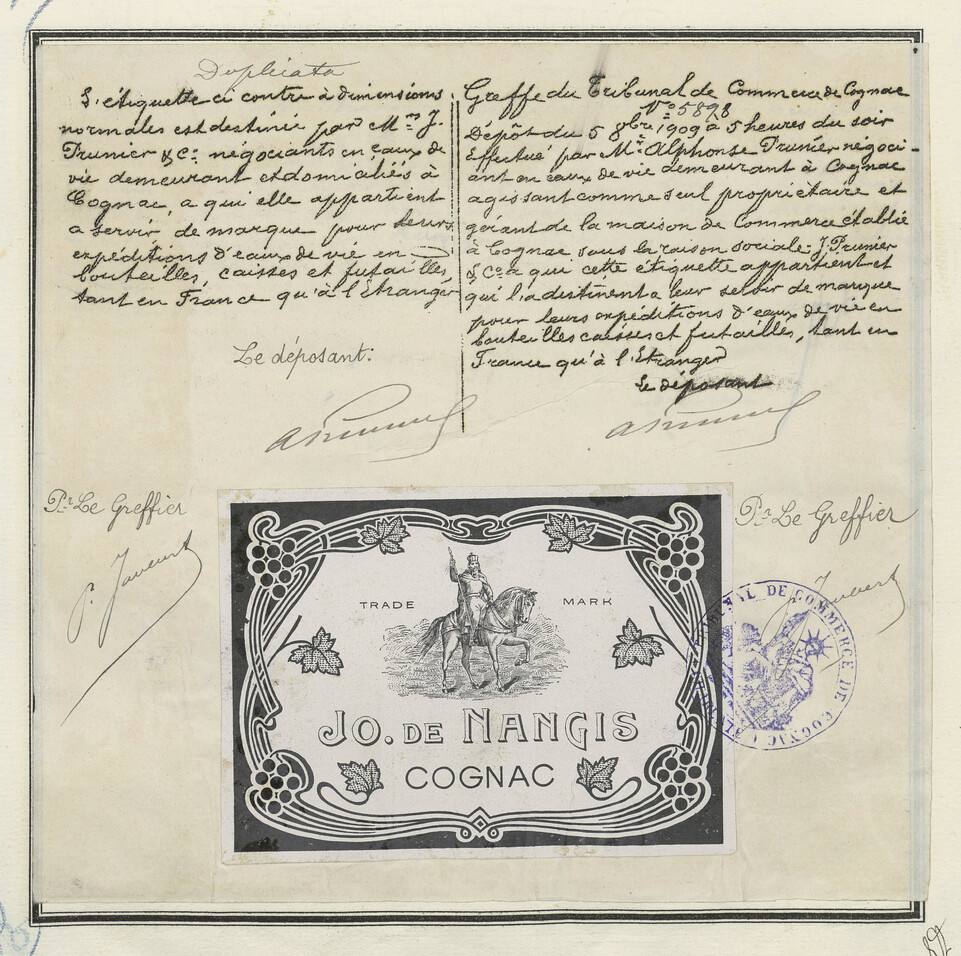 Duplicata
L'étiquette ci contre à dimensions
normales est destinée par Mrs J.
Prunier & Co. négociants en eaux de
vie demeurant et domiciliés à
Cognac, a qui elle appartient
a servir de marque pour leurs
expéditions d'eaux de vie en
bouteilles, caisses et futailles
tant en France qu'à l'Etranger
Le déposant:
APrunier
Greffe du Tribunal de Commerce de Cognac
No 5898
Dépôt du 5 8bre 1909 à 5 heures du soir
Effectué par Mr Alphonse Prunier négoci-
ant en eaux de vie demeurant à Cognac
agissant comme seul propriétaire et
gérant de la maison de Commerce établie
à Cognac sous la raison sociale: J. Prunier
& Co a qui cette étiquette appartient et
qui l'a destinent a leur servir de marque
pour leurs expéditions d'eaux de vie en
bouteilles caisses et futailles, tant en
France qu'à l'Etranger
Le déposant
APrunier
Pr Le Greffier
Pr Le Greffier
TRIBUNAL DE COMMERCE DE COGNAC
TRADE MARK
JO. DE NANGIS
COGNAC